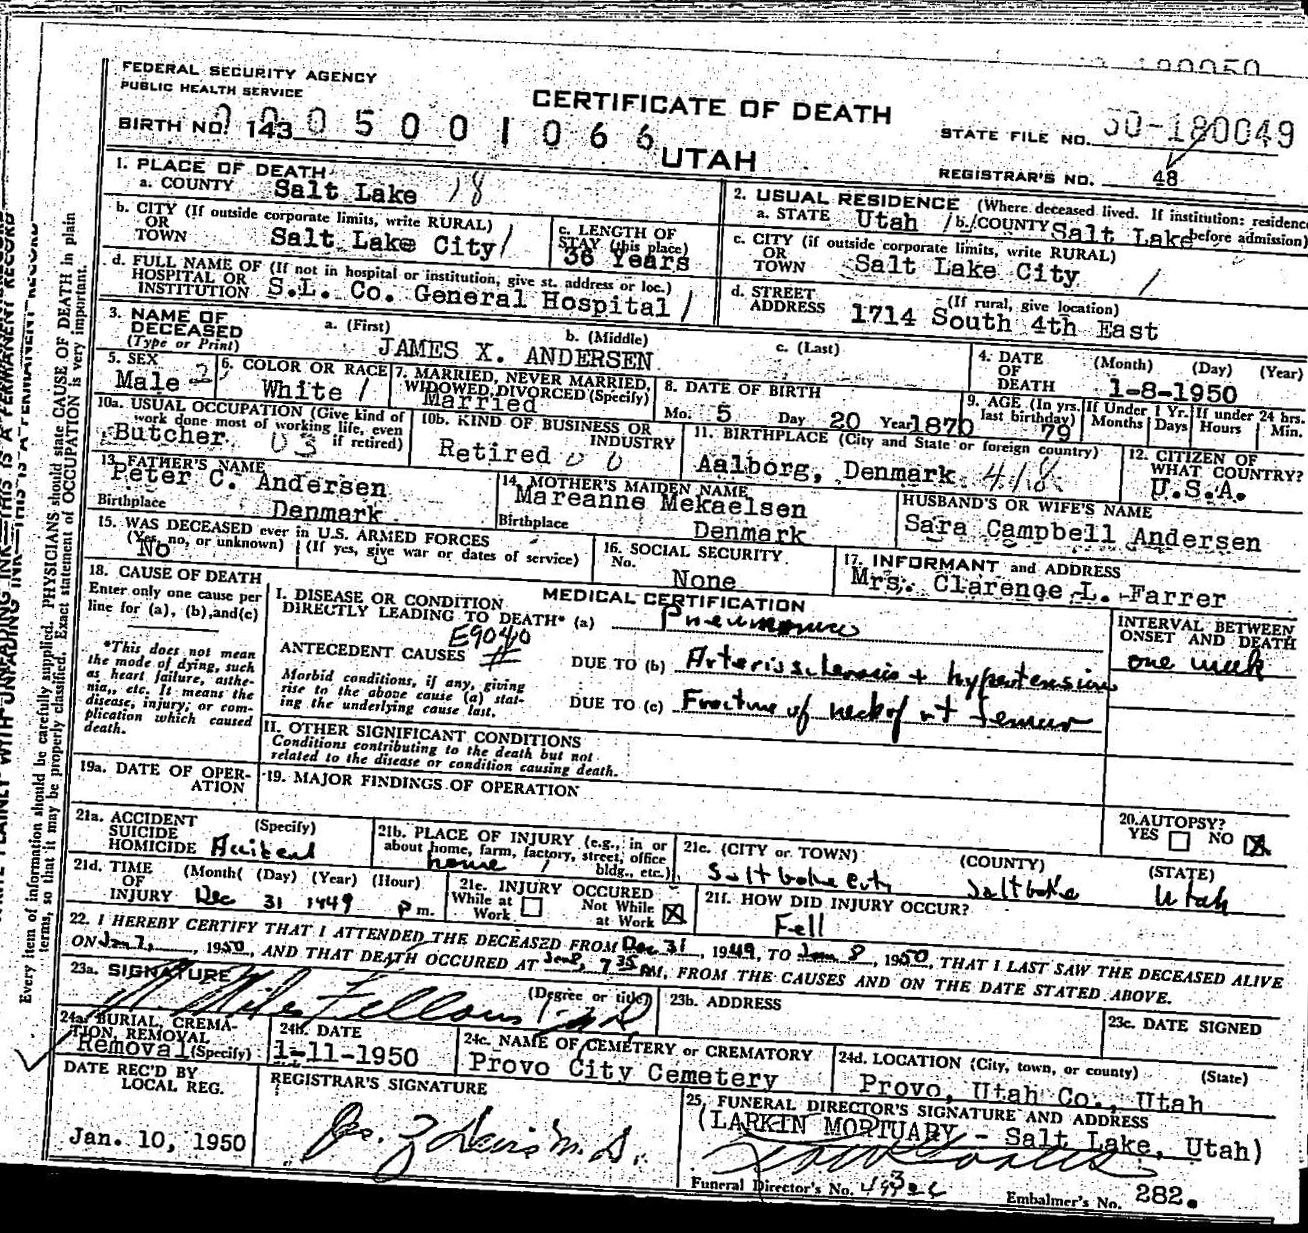 FEDERAL SECURITY AGENCY
PUBLIC HEALTH SERVICE
CERTIFICATE OF DEATH
UTAH
BIRTH NO. 143
0005001066
STATE FILE NO. 50-180049
REGISTRAR'S NO. 48
1. PLACE OF DEATH
a. COUNTY Salt Lake 18
b. CITY (If outside corporate limits, write RURAL)
OR
TOWN Salt Lake City/
c. LENGTH OF
STAY (this place)
36 Years
d. FULL NAME OF (If not in hospital or institution, give st. address or loc.)
HOSPITAL OR
INSTITUTION S.L. Co. General Hospital /
2. USUAL RESIDENCE (Where deceased lived. If institution: residence
before admission)
a. STATE Utah / b. COUNTY Salt Lake
c. CITY (if outside corporate limits, write RURAL)
OR
TOWN Salt Lake City /
d. STREET (If rural, give location)
ADDRESS 1714 South 4th East
3. NAME OF
DECEASED
(Type or Print)
a. (First)
b. (Middle)
c. (Last)
JAMES X. ANDERSEN
4. DATE
OF
DEATH
(Month) (Day) (Year)
1-8-1950
5. SEX
Male 2
6. COLOR OR RACE
White /
7. MARRIED, NEVER MARRIED,
WIDOWED, DIVORCED (Specify)
Married
8. DATE OF BIRTH
Mo. 5 Day 20 Year 1870
9. AGE (In yrs.
last birthday)
79
If Under 1 Yr.
Months Days
If under 24 hrs.
Hours Min.
10a. USUAL OCCUPATION (Give kind of
work done most of working life, even
if retired)
Butcher
10b. KIND OF BUSINESS OR
INDUSTRY
Retired
11. BIRTHPLACE (City and State or foreign country)
Aalborg, Denmark 418
12. CITIZEN OF
WHAT COUNTRY?
U.S.A.
13. FATHER'S NAME
Peter C. Andersen
Birthplace Denmark
14. MOTHER'S MAIDEN NAME
Mareanne Mekaelsen
Birthplace Denmark
HUSBAND'S OR WIFE'S NAME
Sara Campbell Andersen
15. WAS DECEASED ever in U.S. ARMED FORCES
(Yes, no, or unknown) (If yes, give war or dates of service)
No
16. SOCIAL SECURITY
No.
None
17. INFORMANT and ADDRESS
Mrs. Clarence L. Farrer
18. CAUSE OF DEATH
Enter only one cause per
line for (a), (b),and(c)
*This does not mean
the mode of dying, such
as heart failure, asthe-
nia,, etc. It means the
disease, injury, or com-
plication which caused
death.
MEDICAL CERTIFICATION
I. DISEASE OR CONDITION
DIRECTLY LEADING TO DEATH* (a) Pneumonia
E9040
ANTECEDENT CAUSES
Morbid conditions, if any, giving
rise to the above cause (a) stat-
ing the underlying cause last.
DUE TO (b) Arteriosclerosis + hypertension
DUE TO (c) Fracture of neck of rt femur
INTERVAL BETWEEN
ONSET AND DEATH
one week
II. OTHER SIGNIFICANT CONDITIONS
Conditions contributing to the death but not
related to the disease or condition causing death.
19a. DATE OF OPER-
ATION
19. MAJOR FINDINGS OF OPERATION
20. AUTOPSY?
YES NO
21a. ACCIDENT (Specify)
SUICIDE
HOMICIDE Accident
21b. PLACE OF INJURY (e.g., in or
about home, farm, factory, street, office
bldg., etc.)
home
21c. (CITY or TOWN) (COUNTY) (STATE)
Salt Lake City Salt Lake Utah
21d. TIME (Month( (Day) (Year) (Hour)
OF
INJURY Dec 31 1949 P m.
21e. INJURY OCCURED
While at Work Not While at Work
21f. HOW DID INJURY OCCUR?
Fell
22. I HEREBY CERTIFY THAT I ATTENDED THE DECEASED FROM Dec 31, 1949, TO Jan 8, 1950, THAT I LAST SAW THE DECEASED ALIVE
ON Jan 7, 1950, AND THAT DEATH OCCURED AT Jan 8, 7 35 AM, FROM THE CAUSES AND ON THE DATE STATED ABOVE.
23a. SIGNATURE
(Degree or title)
23b. ADDRESS
23c. DATE SIGNED
24a. BURIAL, CREMA-
TION, REMOVAL
Removal (Specify)
24b. DATE
1-11-1950
24c. NAME OF CEMETERY or CREMATORY
Provo City Cemetery
24d. LOCATION (City, town, or county) (State)
Provo, Utah Co., Utah
DATE REC'D BY
LOCAL REG.
Jan. 10, 1950
REGISTRAR'S SIGNATURE
25. FUNERAL DIRECTOR'S SIGNATURE AND ADDRESS
(LARKIN MORTUARY - Salt Lake, Utah)
Funeral Director's No.
Embalmer's No. 282.
Every item of information should be carefully supplied. PHYSICIANS should state CAUSE OF DEATH in plain
terms, so that it may be properly classified. Exact statement of OCCUPATION is very important.
WRITE PLAINLY WITH UNFADING INK—THIS IS A PERMANENT RECORD